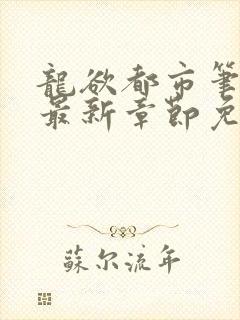 龍欲都市筆
最新章節免
蘇尔流年